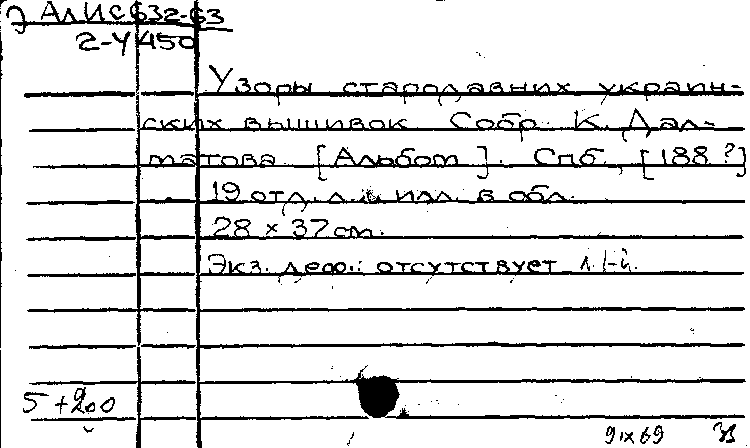 Э АлИС 632-63
2-У 450
Узоры стародавних украин-
ских вышивок. Собр. К. Дал-
матова. [Альбом]. Спб., [188?]
19 отд. л. илл. в обл.
28 × 37 cm.
Экз. деф.: отсутствует л. 1-й.
5 + 200
9 IX 69